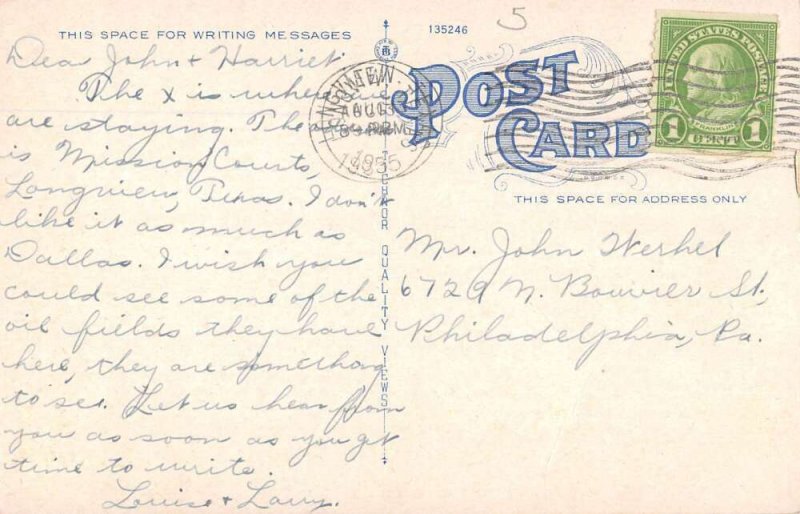 THIS SPACE FOR WRITING MESSAGES
135246
5
Dear John & Harriet
The X is where we
are staying. The
is Mission Courts,
Longview, Texas. I don't
like it as much as
Dallas. I wish you
could see some of the
oil fields they have
here, they are something
to see. Let us hear from
you as soon as you get
time to write.
Louise & Larry.
LONGVIEW
AUG
1935
POST
CARD
UNITED STATES POSTAGE
FRANKLIN
1 CENT 1
THIS SPACE FOR ADDRESS ONLY
Mr. John Werhel
6729 N. Bouvier St.,
Philadelphia, Pa.
QUALITY VIEWS